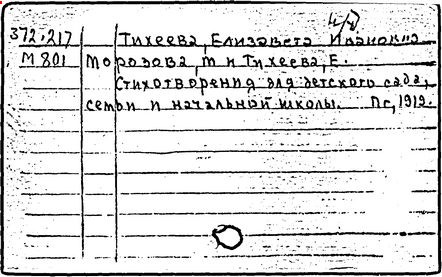 372.217 Тихеева, Елизавета Ивановна
М 801 Морозова, т и Тихеева, Е.
Стихотворения для детского сада,
семьи и начальной школы. Пг, 1912.